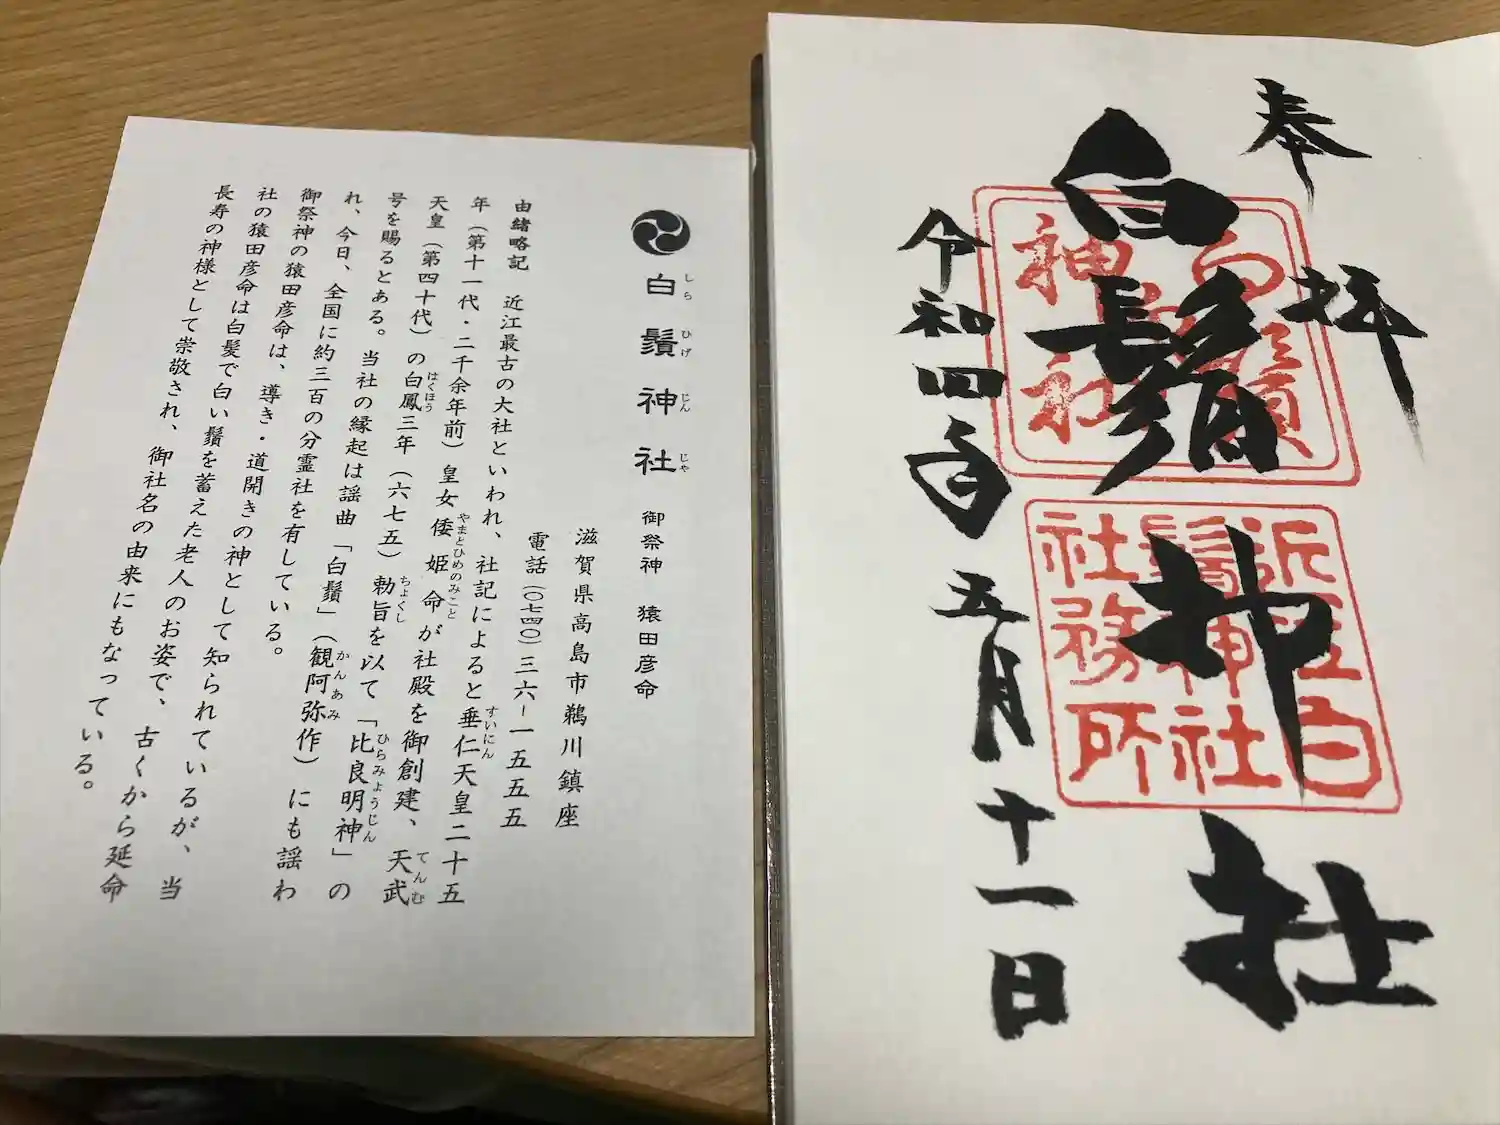 白鬚神社
しらひげじんじゃ
御祭神 猿田彦命
滋賀県高島市鵜川鎮座
電話(〇七四〇)三六-一五五五
由緒略記 近江最古の大社といわれ、社記によると垂仁天皇二十五
すいにん
年(第十一代・二千余年前)皇女倭姫命が社殿を御創建、天武
やまとひめのみこと
てんむ
天皇(第四十代)の白鳳三年(六七五)勅旨を以て「比良明神」の
はくほう
ちょくし
ひらみょうじん
号を賜るとある。当社の縁起は謡曲「白鬚」(観阿弥作)にも謡わ
かんあみ
れ、今日、全国に約三百の分霊社を有している。
御祭神の猿田彦命は、導き・道開きの神として知られているが、当
社の猿田彦命は白髪で白い鬚を蓄えた老人のお姿で、古くから延命
長寿の神様として崇敬され、御社名の由来にもなっている。
奉拝
白鬚神社
令和四年五月十一日
白鬚
神社
近江白
鬚神社
社務所